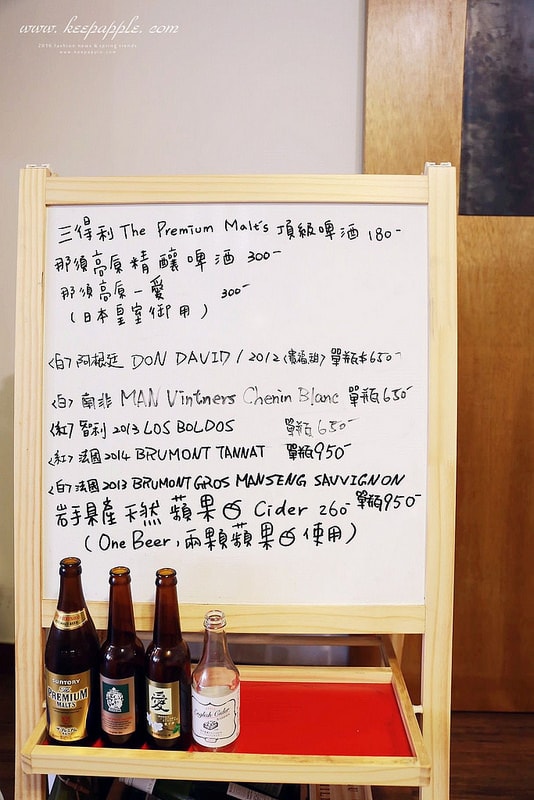 www. keepapple. com
2016 fashion news & caring trends
www.keepapple.com
三得利 The Premium Malt's 頂級啤酒 180-
那須高原精釀啤酒 300-
那須高原-愛 300-
(日本皇室御用)
<白> 阿根廷 DON DAVID / 2012 單瓶 650-
<白> 南非 MAN Vintners Chenin Blanc 單瓶 650-
<紅> 智利 2013 LOS BOLDOS 單瓶 650-
<紅> 法國 2014 BRUMONT TANNAT 單瓶 950-
<白> 法國 2013 BRUMONT GROS MANSENG SAUVIGNON
單瓶 950-
岩手県產天然蘋果 Cider 260-
(One Beer, 兩顆蘋果使用)
SUNTORY
The
PREMIUM
MALT'S
愛
English Cider